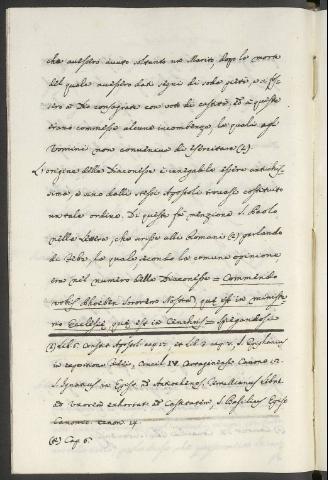 che avessero avuto soltanto un Marito, dopo la morte
del quale avessero dati segni di soda pietà, e si fos-
sero a Dio consagrate con voto di castità. Et a queste
erano commesse alcune incombenze, le quali agl'
Uomini non conveniva di esercitare (1).
L'origine delle Diaconesse è innegabile essere antichis-
sima, e uno dalli stessi Apostoli trovasi costituito
un tale ordine. Di queste fa menzione S. Paolo
nella Lettera, che scrisse alli Romani (2) parlando
di Febe, la quale, secondo la comune opinione
era nel numero delle Diaconesse = Commendo
vobis Phoeben Sororem Nostram, quae est in ministe-
rio Ecclesiae, quae est in Cenchris =
(1) Lib. 6. Const. Apost. cap. 17. et Lib. 2 cap. S. Epiphanius
in expositione Fidei, Concil. IV. Cartaginense Canone 12.
S. Ignatius in Epist. ad Antiochenos, Tertullianus Libro
ad Uxorem exhortat. ad Castitatem, S. Basilius Epist.
Canonic. canon. 24.
(2) Cap. 6.